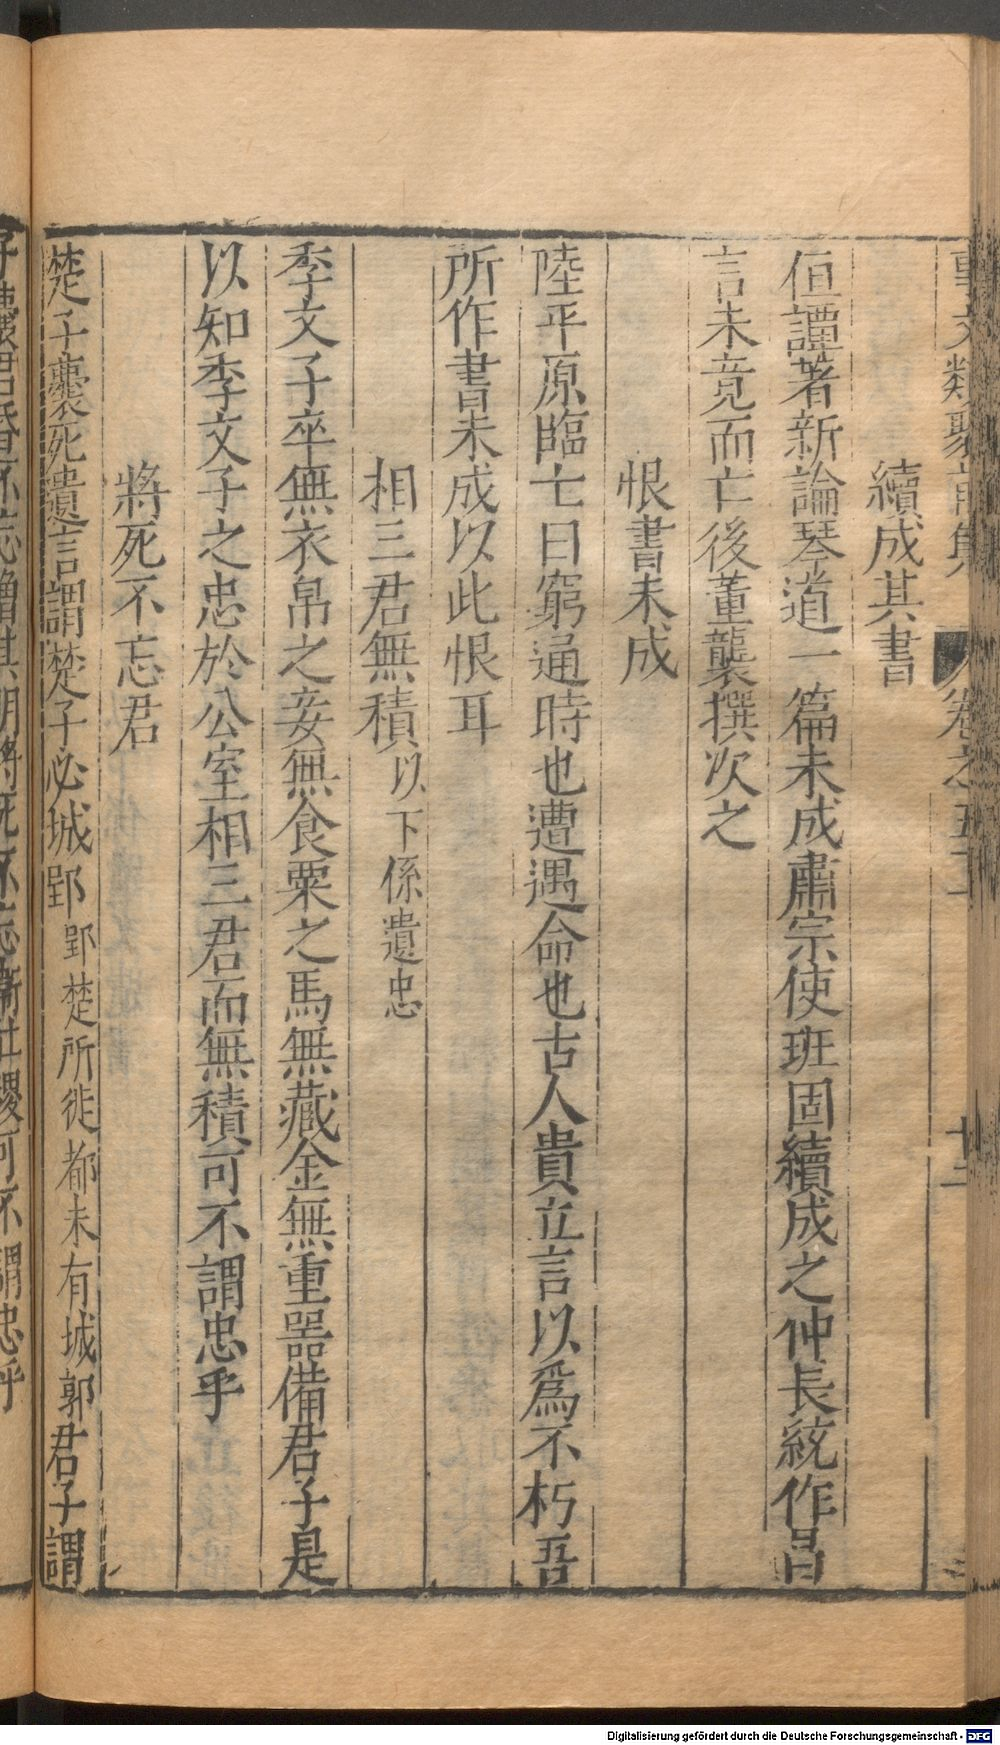 事文類聚前集 卷之五十 廿二
續成其書
佢譚著新論琴道一篇未成肅宗使班固續成之仲長統作昌
言未竟而亡後董襲撰次之
恨書未成
陸平原臨亡曰窮通時也遭遇命也古人貴立言以爲不朽吾
所作書未成以此恨耳
相三君無積以下係遺忠
季文子卒無衣帛之妾無食粟之馬無藏金無重器備君子是
以知季文子之忠於公室相三君而無積可不謂忠乎
將死不忘君
楚子囊死遺言謂楚子必城郢郢楚所徙都未有城郭君子謂
子囊君不忘增其將死不忘社稷可不謂忠乎
Digitalisierung gefördert durch die Deutsche Forschungsgemeinschaft - DFG